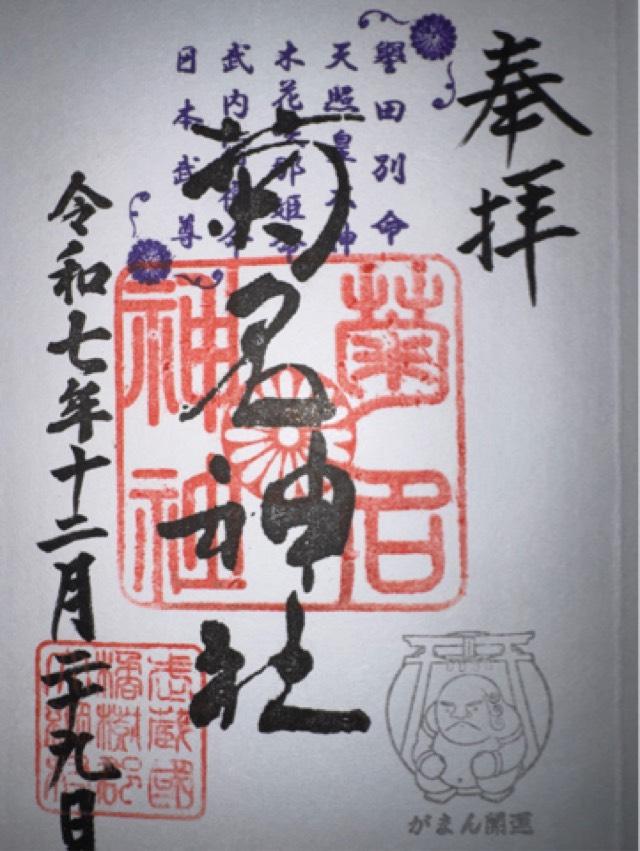 奉拝
譽田別命
天照皇大神
木花咲耶姫命
武内宿禰命
日本武尊
菊名神社
菊名
神社
令和七年十二月二十九日
武蔵國
橘樹郡
がまん開運